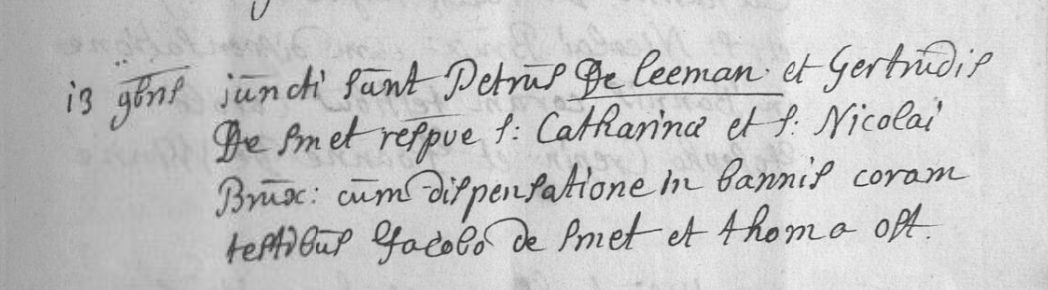 13 9bris juncti sunt Petrus De leeman et Gertrudis
De smet respve s: Catharinæ et s: Nicolai
Brux: cum dispensatione in bannis coram
testibus Jacobo de smet et thoma opt.